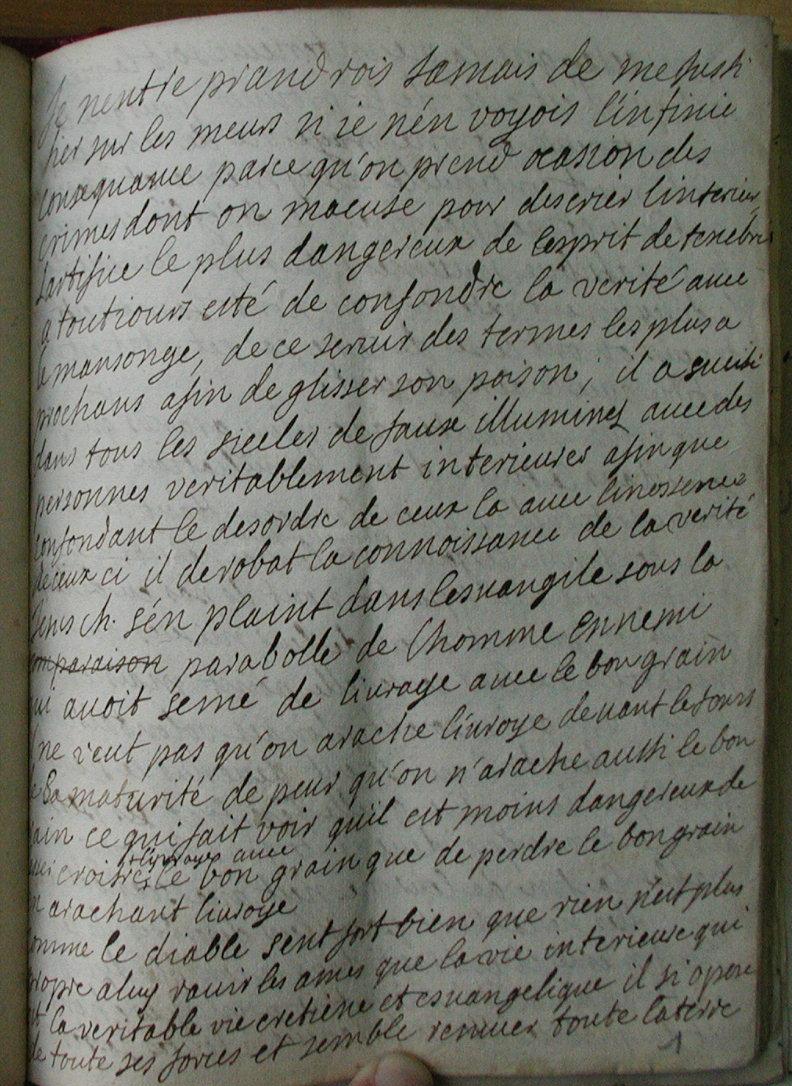 Je nentre prandrois Jamais de me Justi
fier sur les meurs si ie nén voyois linfinie
consequance parce qu'on prend ocasion des
crimes dont on macuse pour descrier linterieur
Lartifice le plus dangereux de lesprit de tenebres
a toutiours esté de confondre la verité auec
le mansonge, de ce seruir des termes les plus a
prochans afin de glisser son poison, il a sucité
dans tous les siecles de faux illuminez auec des
personnes veritablement interieures afin que
confondant le desordre de ceux la auec linossence
de ceux ci il derobat la connoissance de la verité
Jesus ch. sén plaint dans lesuangile sous la
comparaison parabolle de lhomme ennemi
qui auoit semé de liuraye auec le bon grain
il ne veut pas qu'on arache liuroye deuant le Jours
de Sa maturité de peur qu'on n'arache aussi le bon
grain ce qui fait voir quil est moins dangereux de
croitre liuraye auec le bon grain que de perdre le bon grain
en arachant liuroye
comme le diable sent fort bien que rien nést plus
propre a luy rauir les ames que la vie interieuse qui
est la veritable vie cretiene et esuangelique il si opose
de toute ses forces et semble remuer toute la terre
1